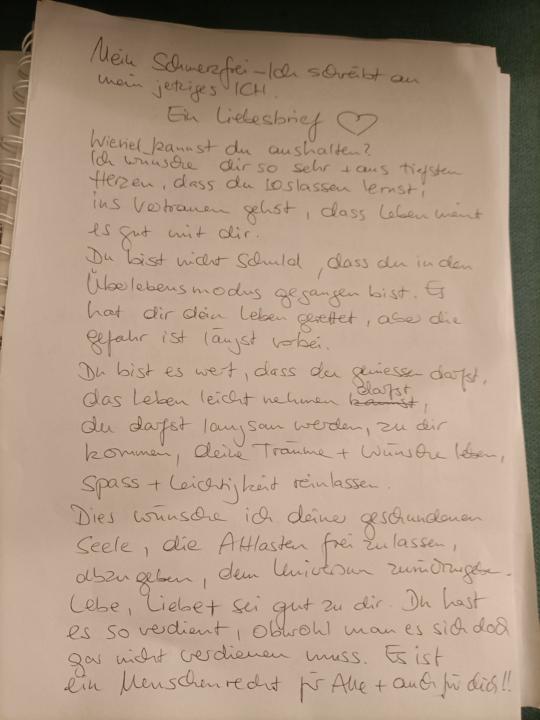 Mein Schmerzfrei-Ich schreibt an
mein jetziges ICH.
Ein Liebesbrief ♡
Wieviel kannst du aushalten?
Ich wünsche dir so sehr + aus tiefsten
Herzen, dass du loslassen lernst,
ins Vertrauen gehst, dass Leben meint
es gut mit dir.
Du bist nicht Schuld, dass du in den
Überlebensmodus gegangen bist. Es
hat dir dein Leben gerettet, aber die
Gefahr ist längst vorbei.
Du bist es wert, dass du geniessen darfst,
das Leben leicht nehmen kannst darfst,
du darfst langsam werden, zu dir
kommen, deine Träume + Wünsche leben,
Spass + Leichtigkeit reinlassen.
Dies wünsche ich deiner geschundenen
Seele, die Altlasten frei zu lassen,
abzugeben, dem Universum zurückzugeben.
Lebe, Liebe + sei gut zu dir. Du hast
es so verdient, obwohl man es sich doch
gar nicht verdienen muss. Es ist
ein Menschenrecht für Alle + auch für dich!!